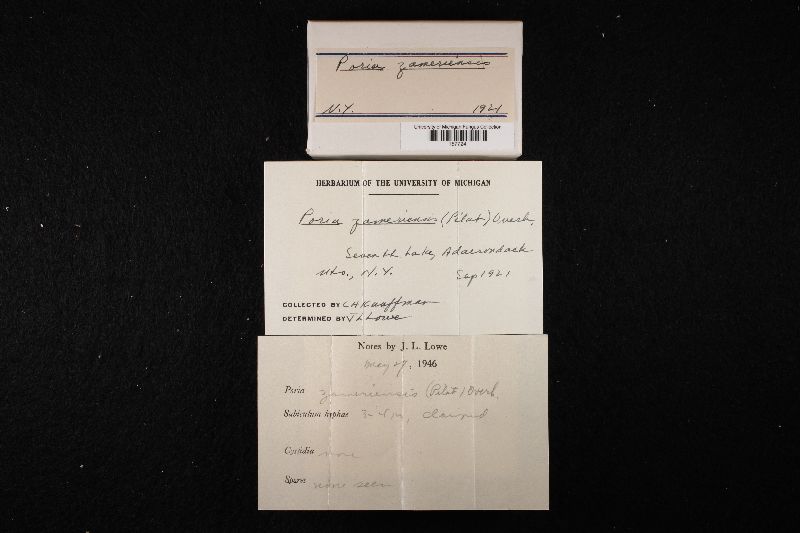 Poria zameriensis
N.Y. 1921
University of Michigan Fungus Collection
HERBARIUM OF THE UNIVERSITY OF MICHIGAN
Poria zameriensis (Pilat) Overh.
Seventh Lake, Adirondack
Mts., N.Y. Sep 1921
COLLECTED BY C H Kauffman
DETERMINED BY J L Lowe
Notes by J. L. Lowe
May 27, 1946
Poria zameriensis (Pilat) Overh.
Subiculum hyphae 3-4 μ, clamped
Cystidia none
Spores none seen